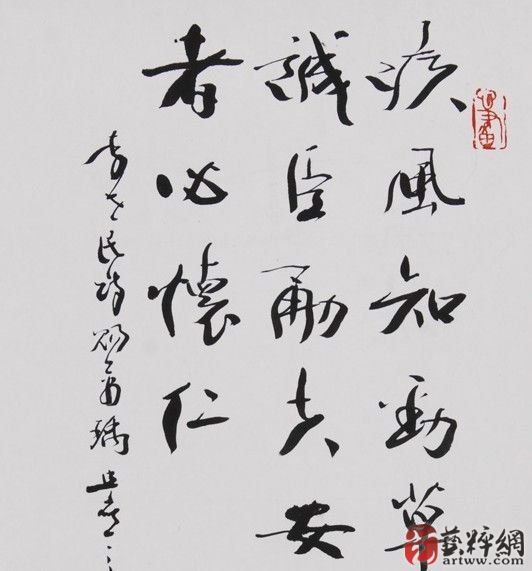 疾風知勁草
誠臣勇夫安
者必懷仁
李世民詩賜蕭瑀
藝粹網
artww.com